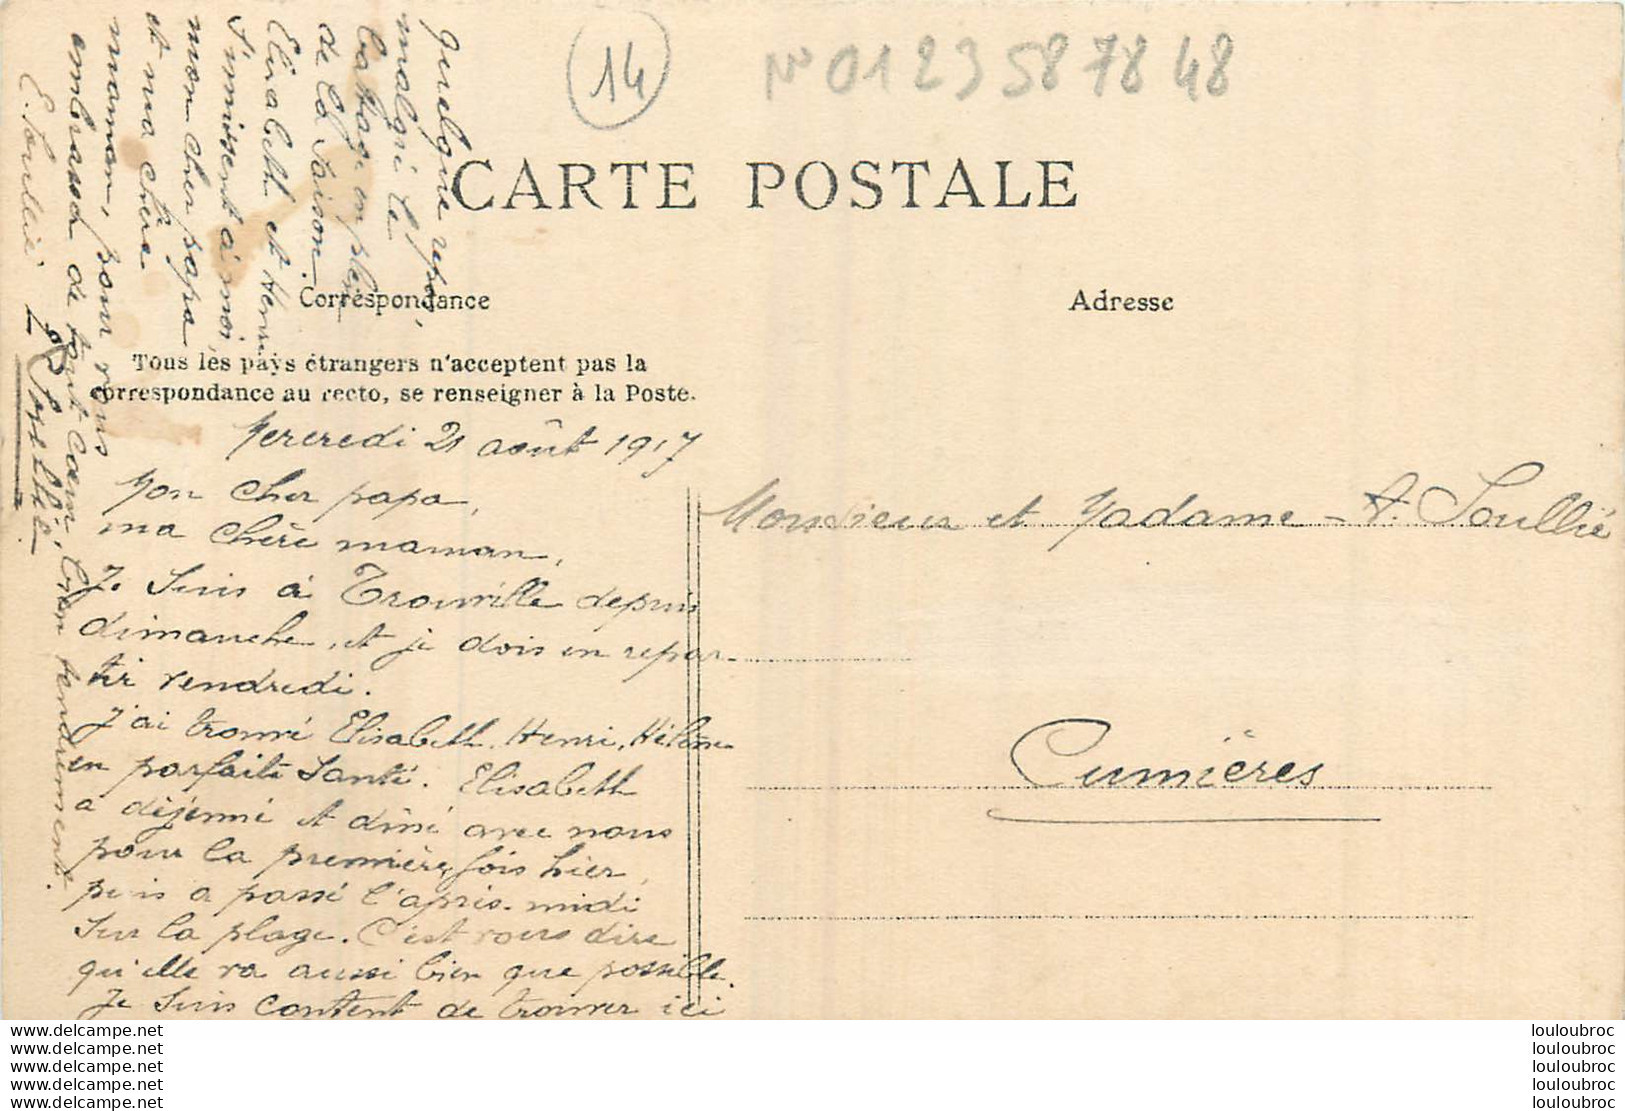 14
N° 01 23 58 78 48
CARTE POSTALE
Correspondance
Adresse
Tous les pays étrangers n'acceptent pas la
correspondance au recto, se renseigner à la Poste.
Mercredi 21 août 1917
Mon cher papa,
ma chère maman,
Je suis à Trouville depuis
dimanche, et je dois en repar-
tir vendredi.
J'ai trouvé Elisabeth, Henri, Hélène
en parfaite santé. Elisabeth
a déjeuné et dîné avec nous
pour la première fois hier,
puis a passé l'après-midi
sur la plage. C'est vous dire
qu'elle va aussi bien que possible.
Je suis content de trouver ici
quelque repos,
malgré le
en plein
de la saison.
Elisabeth et Henri
s'unissent à moi,
mon cher papa
et ma chère
maman, pour vous
embrasser de tout cœur, bien tendrement.
E. Soullié
Monsieur et Madame A. Soullié
Cumières
www.delcampe.net
www.delcampe.net
www.delcampe.net
www.delcampe.net
www.delcampe.net
louloubroc
louloubroc
louloubroc
louloubroc
louloubroc